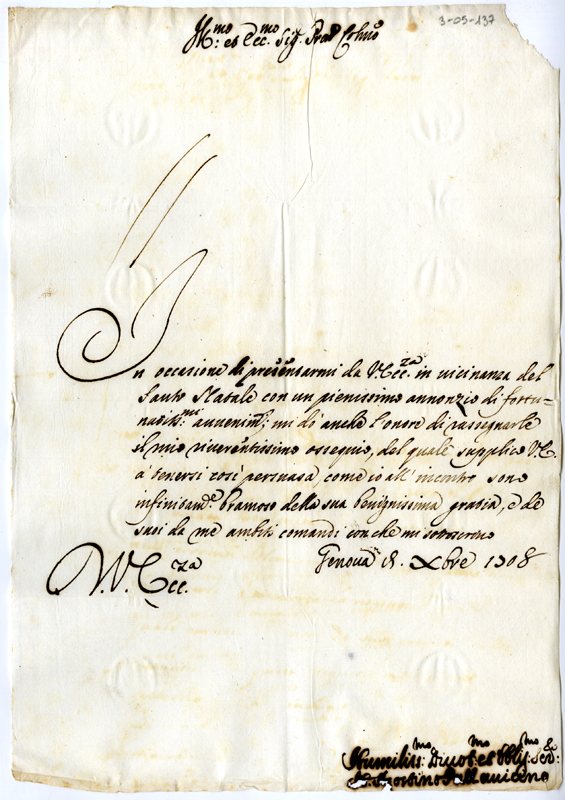 3-05-137
Ill:mo et Ecc:mo Sig:r Pron Colmo
In occasione di presentarmi da V. Ecc.za in vicinanza del
Santo Natale con un pienissimo annonzio di fortu=
natiss:mi auuenim:ti mi dò anche l'onore di rassegnarle
il mio riuerentissimo ossequio, del quale supplico V. E.
à tenersi così persuasa, come io all'incontro sono
infinitam.te bramoso della sua benignissima gratia, e de
suoi da me ambiti comandi con che mi sottoscriuo
V. Ecc.za
Genoua 18. Xbre 1708
Humiliss:mo Diuot:mo et Oblig:mo Ser:
Agostino Pallauicino